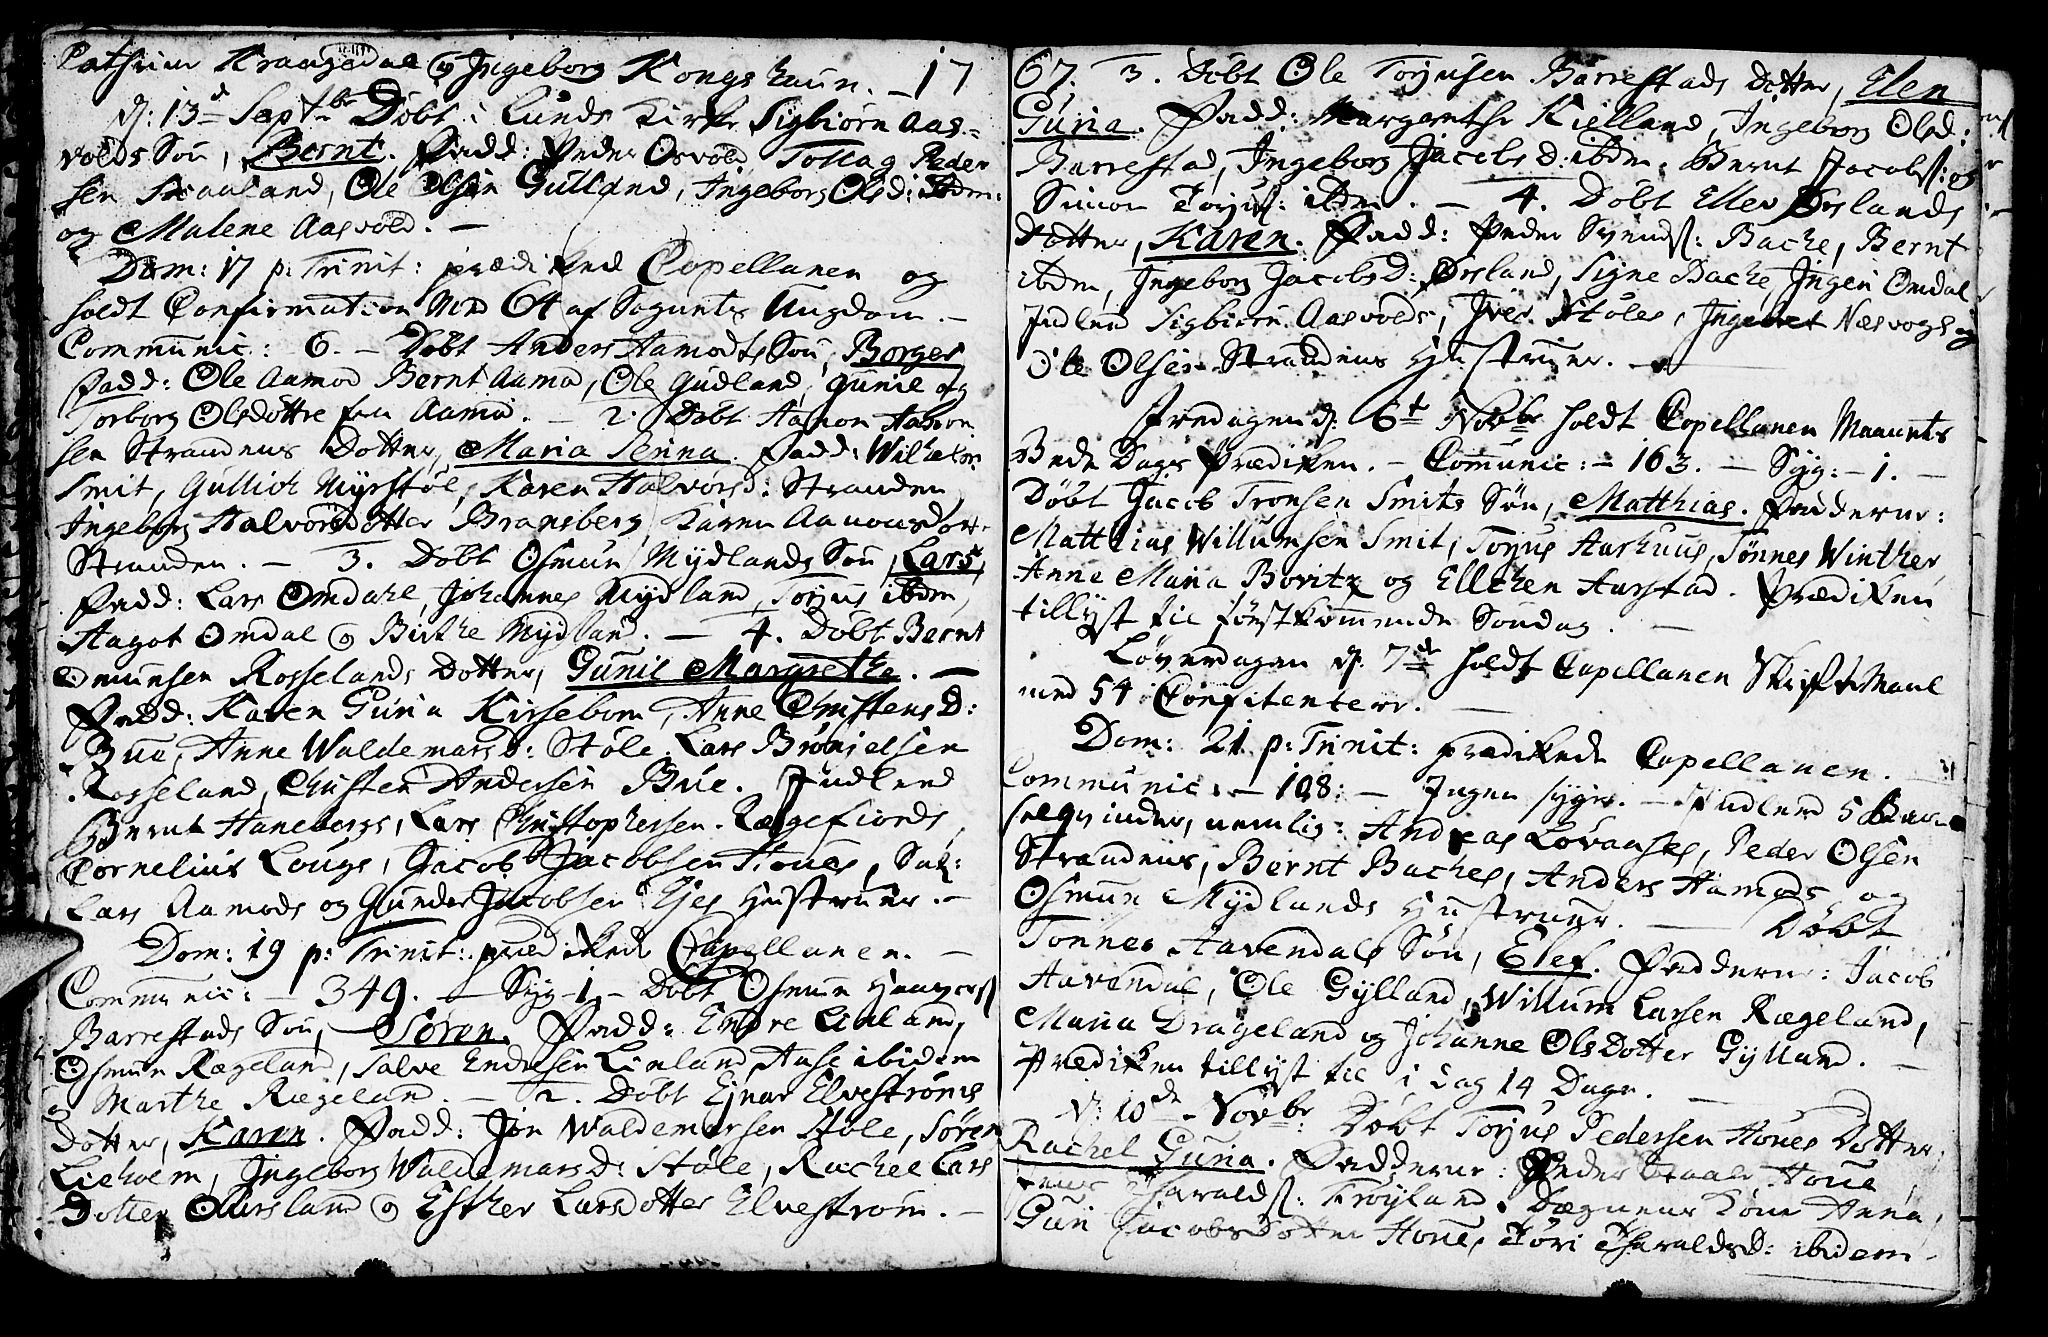 Krangedal og Ingeborg Kongshaun. – 17
d: 13d Septbr Döbt i Lunds Kirke Sigbiörn Aas-
volds Sön, Bernt. Fadd: Peder Osvold Tollag Peder
sen, Ole Olsen Gulland, Ingeborg Olsd: ibdm:
og Malene Aasvold. –
Dom: 17 p: Trinit: prædikede Capellanen og
holdt Confirmation med 64 af Sognets Ungdom. –
Communic: 6. – Döbt Anders Aamodts Sön, Börger
Fadd: Ole Aamod Bernt Aamod, Ole Gudland, Gunil og
Torborg Olsdöttre fra Aamod. – 2. Döbt Aanon Aanon
sen Strandens Dotter, Maria Senna. Fadd: Wilhelm
Smit, Gullich Myrstöl, Karen Halvorsd: Stranden,
Ingeborg Halvorsdotter Bransberg, Karen Aanonsdott.
Stranden. – 3. Döbt Osmun Mydlands Sön, Lars,
Fadd: Lars Omdahl, Johannes Mydland, Torjus ibdm,
Aagot Omdal og Birthe Mydland. – 4. Döbt Bernt
Omunsen Rosselands Dotter, Gunil Margrethe. –
Fadd: Karen Guria Kirsebom, Anne Christens D:
Bue, Anne Waldemarsd: Stöle, Lars Brönjelsen
Rosseland, Christen Andersen Bue. Indlend
Bernt Hanebergs, Lars Christophersen Rægefiords,
Cornelius Lougs, Jacob Jacobsen Houes, Sal:
Lars Aamods og Gunder Jacobsen Ejes Hustruer. –
Dom: 19 p: Trinit: prædikede Capellanen. –
Communic: – 349. – Syg – 1 – Döbt Osmun
Barrestads Sön, Sören. Fadd: Endre Linland,
Osmun Rægeland, Salve Endresen Linland, Aase ibidem
og Marthe Rægeland. – 2. Döbt Ejnar Elveströms
Dotter, Karen. Fadd: Jon Waldemarsen Stöle, Sören
Lieholm, Ingeborg Waldemarsd: Stöle, Rachel Lars
Dotter Aursland og Esther Larsdotter Elveström. –
67. 3. Döbt Ole Torjusen Barrestads Dotter, Elen
Guria. Fadd: Margrethe Kielland, Ingeborg Olsd:
Barrestad, Ingeborg Jacobsd: ibdm. Bernt Jacobs: og
Simon Torjus: ibdm. – 4. Döbt Ellev Örslands
Dotter, Karen. Fadd: Peder Svends: Bache, Bernt
ibdm, Ingeborg Jacobs D: Örsland, Signe Bache, Ingen Omdal
Indlend Sigbiörn Aasvolds, Iver Stöles, Ingebret Næsvogs og
Ole Olsen Strandens Hustruer. –
Fredagen d. 6t Novbr holdt Capellanen Maanets
Bede Dags Prædiken. – Communic: – 163. – Syg: – 1. –
Döbt Jacob Tronsen Smits Sön, Matthias. Fadderne:
Matthias Willumsen Smit, Torjus Aarhuus, Tönnes Winther,
Anne Maria Boritz og Ellchen Aarstad. Prædiken
tillyst til förstkommende Söndag. –
Löverdagen d. 7de holdt Capellanen Skrifte Maal
med 54 Confitentere. –
Dom: 21 p: Trinit: prædikede Capellanen.
Communic: – 108: – Ingen syge. – Indlend 5 Barn
selqvinder, nemlig: Andreas Lövaases, Peder Olsen
Strandens, Bernt Baches, Anders Aamods og
Osmun Mydlands Hustruer. – Döbt
Tönnes Aavendals Sön, Elef. Fadderne: Jacob
Aavendal, Ole Gylland, Willum Larsen Rægeland,
Maria Drageland og Johanne Olsdotter Gylland. –
Prædiken tillyst til i dag 14 Dage. –
d: 10de Novbr: Döbt Torjus Pedersen Houes Dotter,
Rachel Guria. Fadderne: Peder Houe,
Haralds: Fröyland, Degnens Kone Anna,
Guri Jacobsdotter Houe, Töri Tharaldsd: ibidem –